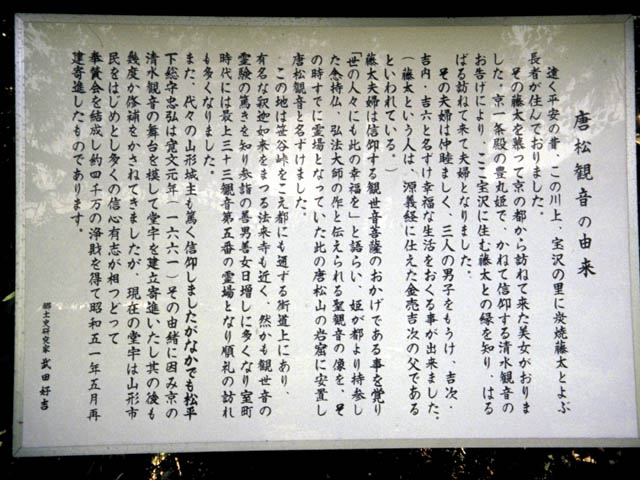 唐松観音の由来
遠く平安の昔、この川上、宝沢の里に炭焼藤太とよぶ
長者が住んでおりました。
その藤太を慕って京の都から訪ねて来た美女がおりま
した。京一条殿の豊丸姫で、かねて信仰する清水観音の
お告げにより、ここ宝沢に住む藤太との縁を知り、はる
ばる訪ねて来て夫婦となりました。
その夫婦は仲睦まじく、三人の男子をもうけ、吉次・
吉内・吉六と名ずけ幸福な生活をおくる事が出来ました。
（藤太という人は、源義経に仕えた金売吉次の父である
といわれている。）
藤太夫婦は信仰する観世音菩薩のおかげである事を覚り
「世の人々にも此の幸福を」と語らい、姫が都より持参し
た念持仏、弘法大師の作と伝えられる聖観音の像を、そ
の時すでに霊場となっていた此の唐松山の岩窟に安置し
唐松観音と名ずけました。
この地は笹谷峠をこえ都にも通ずる街道上にあり、
有名な釈迦如来をまつる法来寺も近く、然かも観世音の
霊験の篤きを知り参詣の善男善女日増しに多くなり室町
時代には最上三十三観音第五番の霊場となり順礼の訪れ
も多くなりました。
また、代々の山形城主も篤く信仰しましたがなかでも松平
下総守忠弘は寛文元年（一六六一）その由緒に因み京の
清水観音の舞台を模して堂宇を建立寄進いたし其の後も
幾度か修補をかさねてきましたが、現在の堂宇は山形市
民をはじめとし多くの信心有志が相つどって
奉賛会を結成し約四千万の浄財を得て昭和五一年五月再
建寄進したものであります。
郷土史研究家 武田好吉